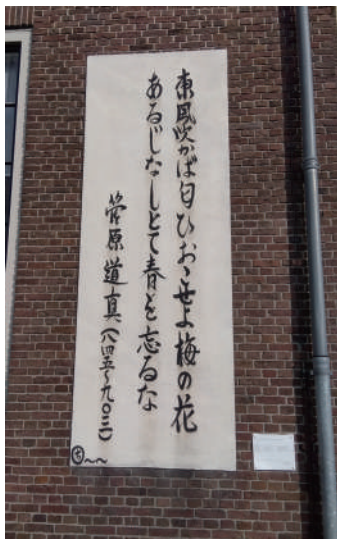 東風吹かば匂ひおこせよ梅の花
あるじなしとて春を忘るな
菅原道真(八四五～九〇三)